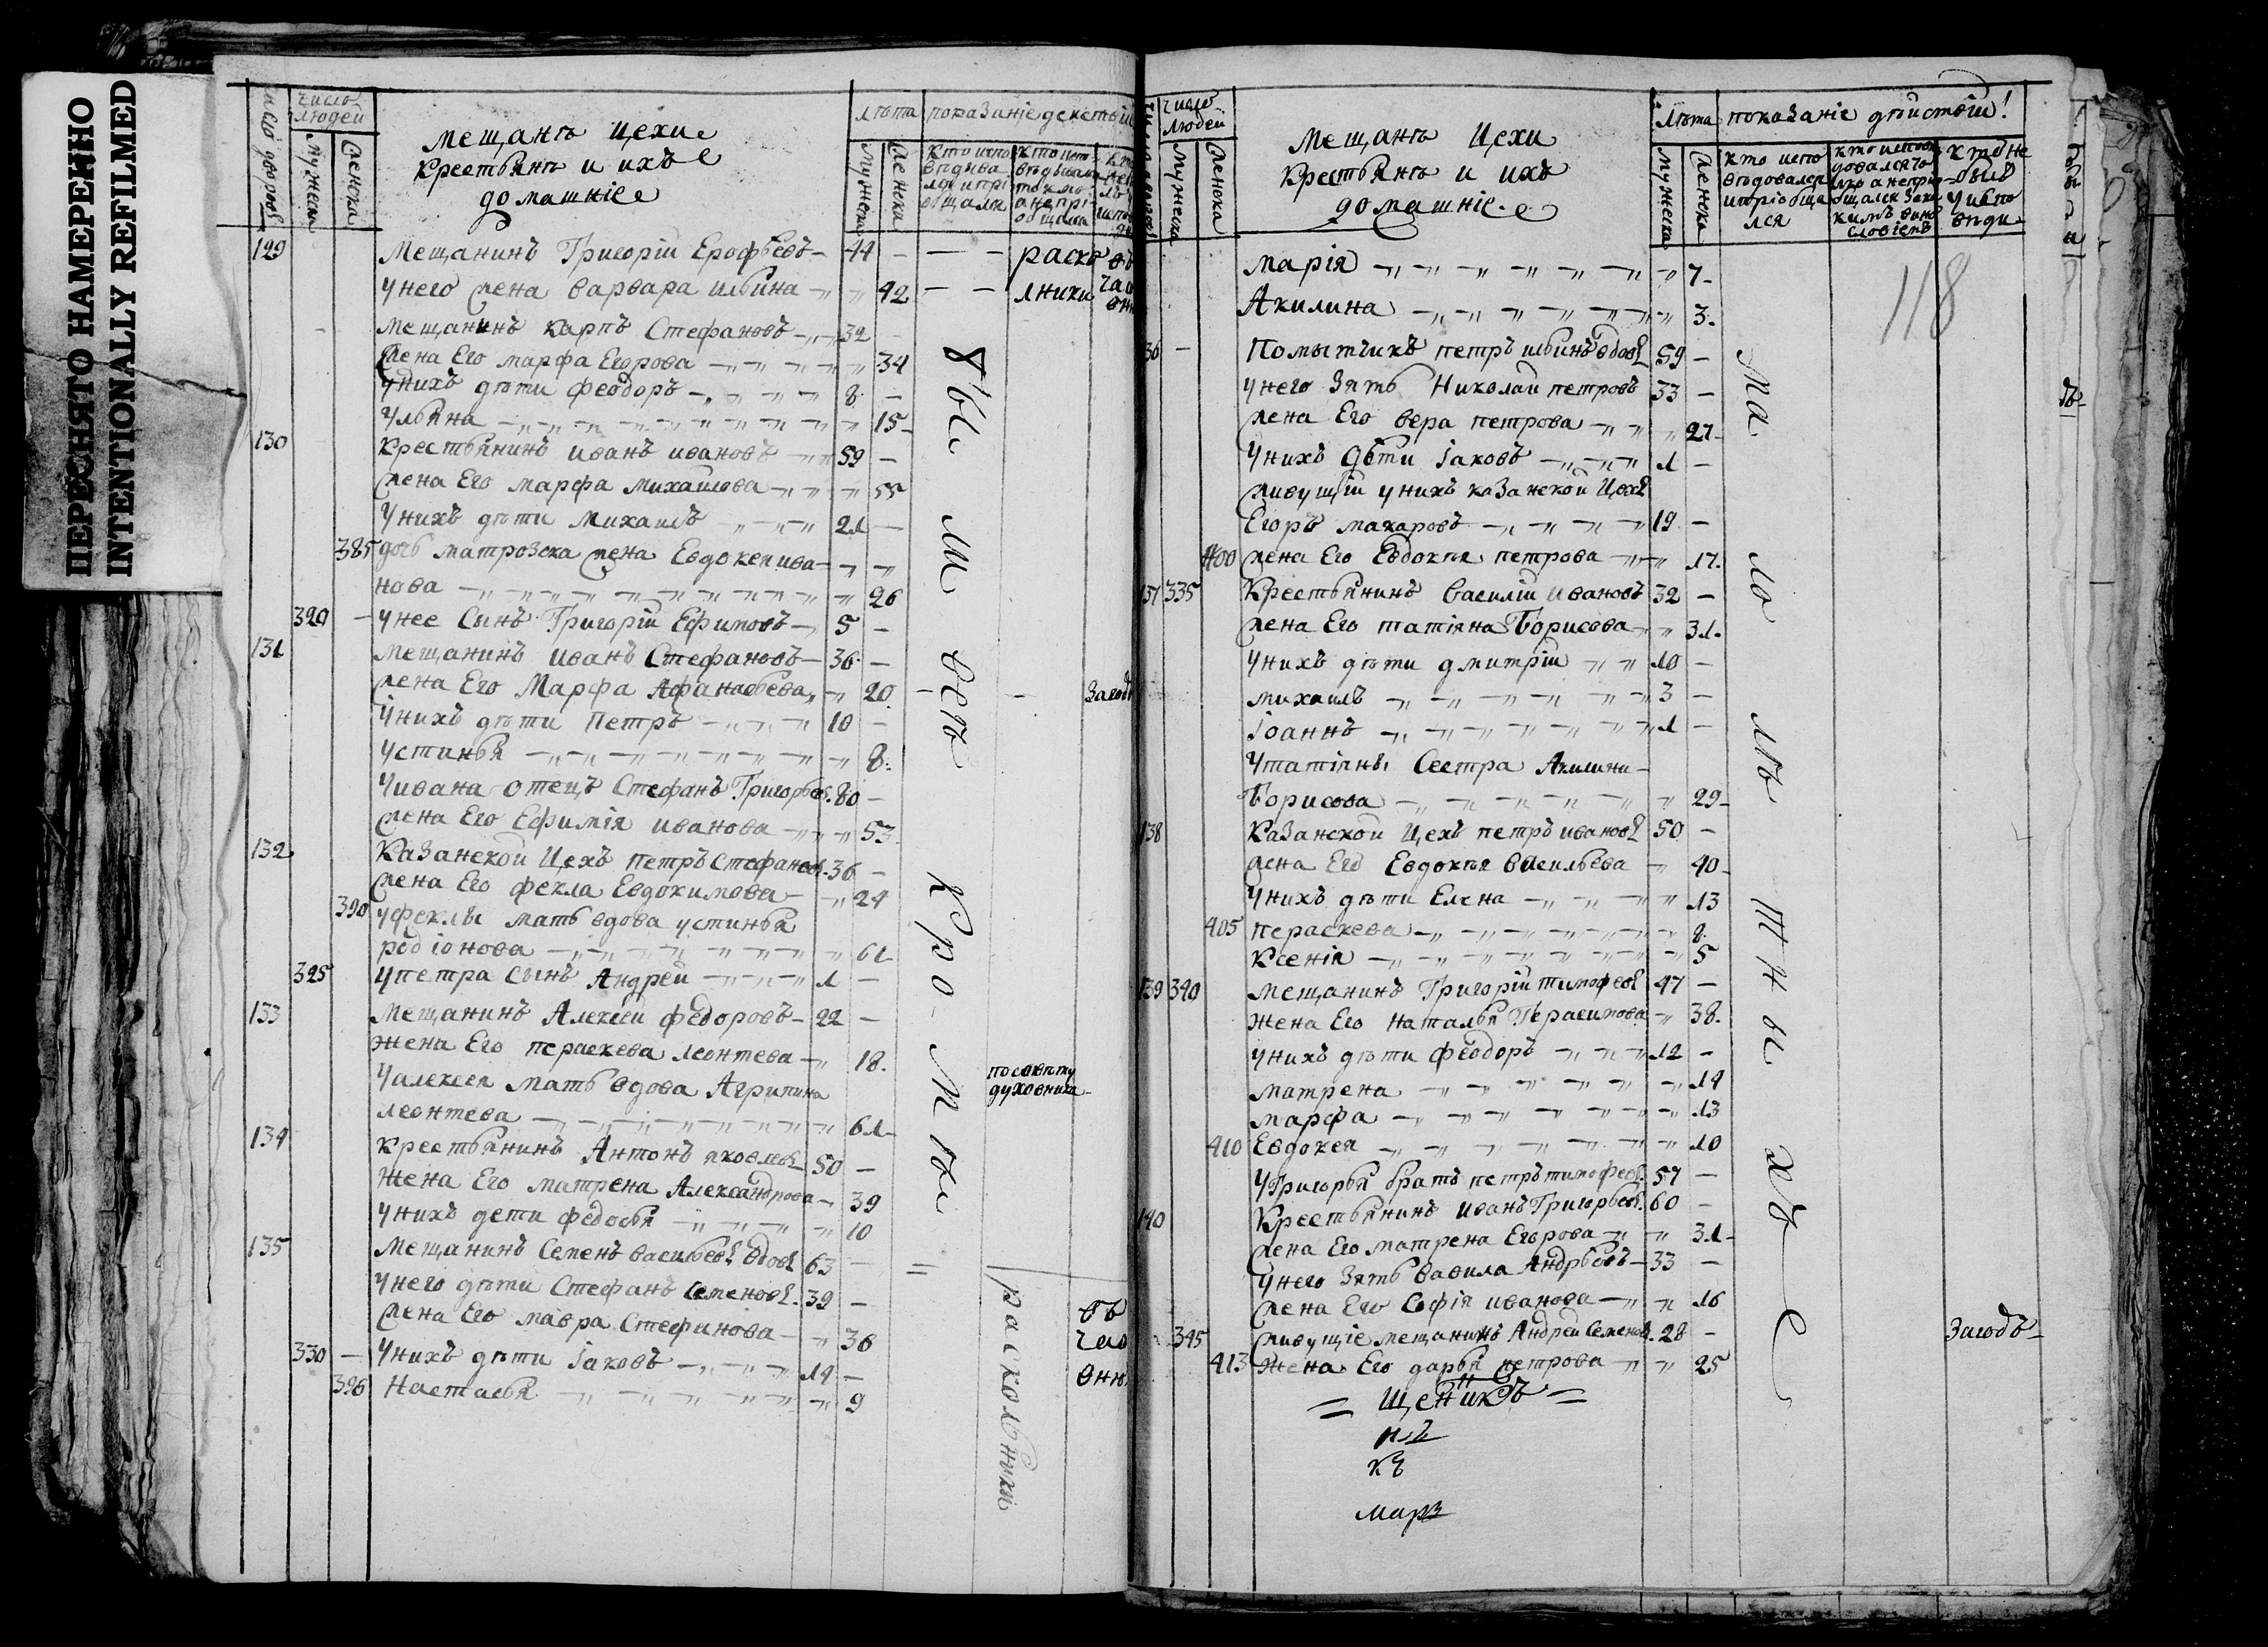 ПЕРЕСНЯТО НАМЕРЕННО
INTENTIONALLY REFILMED
число дворовъ
число людей
мужеска
женска
мещанъ цехи
крестьянъ и ихъ
домашніе
лѣта
показаніе
мужеска
женска
129 Мещанинъ Григорій Ерофѣевъ 44 раск
у него жена варвара ильина 42 лники
мещанинъ карпъ Стефановъ 32
жена Его марфа Егорова 34
у нихъ дѣти феодоръ 8
Ульяна 15
130 крестьянинъ иванъ ивановъ 59
жена Его марфа михайлова 55
у нихъ дѣти михаилъ 21
385 дочь матрозска жена Евдокея ива-
нова 26
320 у нее Сынъ Григорій Ефимовъ 5
131 мещанинъ иванъ Стефановъ 36
жена Его Марфа Афанасьева 20
у нихъ дѣти Петръ 10
устинья 8
у ивана отецъ Стефанъ Григорьев. 80
жена Его Ефимія иванова 53
132 казанской цехъ петръ Стефанов. 36
жена Его фекла Евдокимова 24
390 у феклы мать вдова устинья
родіонова 61
325 у петра сынъ Андрей 1
133 мещанинъ Алексеи федоровъ 22
жена Его пераскева леонтева 18.
у алексея мать вдова Агрипина
леонтева 61
по совѣту
духовника
134 крестьянинъ Антонъ яковлев 50
жена Его матрена Александрова 39
у нихъ дети федосья 10
135 мещанинъ Семенъ васильев вдов 63
у него дѣти Стефанъ Семенов. 39
жена Его мавра Стефанова 36
330 у нихъ дѣти іаковъ 14
396 Настасья 9
были вси кроми
раскольники
число людей
мужеска
женска
мещанъ цехи
крестьянъ и ихъ
домашніе
лѣта
показаніе дѣйствій
мужеска
женска
кто испо
вѣдовался
и пріобща
лся
кто не
былъ
у испо
вѣди
118
марія 7
Акилина 3.
36 Помытчикъ петръ ильинъ вдов 59
у него зять Николай петровъ 33
жена Его вера петрова 27
у нихъ дѣти іаковъ 1
живущій у нихъ казанской цех
Егоръ макаровъ 19
400 жена Его Евдокея петрова 17.
137 335 крестьянинъ василій ивановъ 32
жена Его татіяна Борисова 31.
у нихъ дѣти дмитрій 10
михаилъ 3
іоаннъ 1
у татіяны Сестра Акилина
Борисова 29
138 казанской цехъ петръ иванов 50
жена Его Евдокея васильева 40
у нихъ дѣти Елена 13
405 пераскева 8.
ксенія 5
139 340 мещанинъ Григорій тимофеев 47
жена Его наталья Герасимова 38.
у нихъ дѣти феодоръ 12
матрена 14
марфа 13
410 Евдокея 10
у Григорья братъ петръ тимофеев. 57
140 крестьянинъ иванъ Григорьев. 60
жена Его матрена Егорова 31
у него зять вавила Андрѣевъ 33
жена Его Софія иванова 16
345 живущіе мещанинъ Андрей Семенов. 28
413 жена Его дарья петрова 25
малолѣтны хъ
= щеникъ =
марз